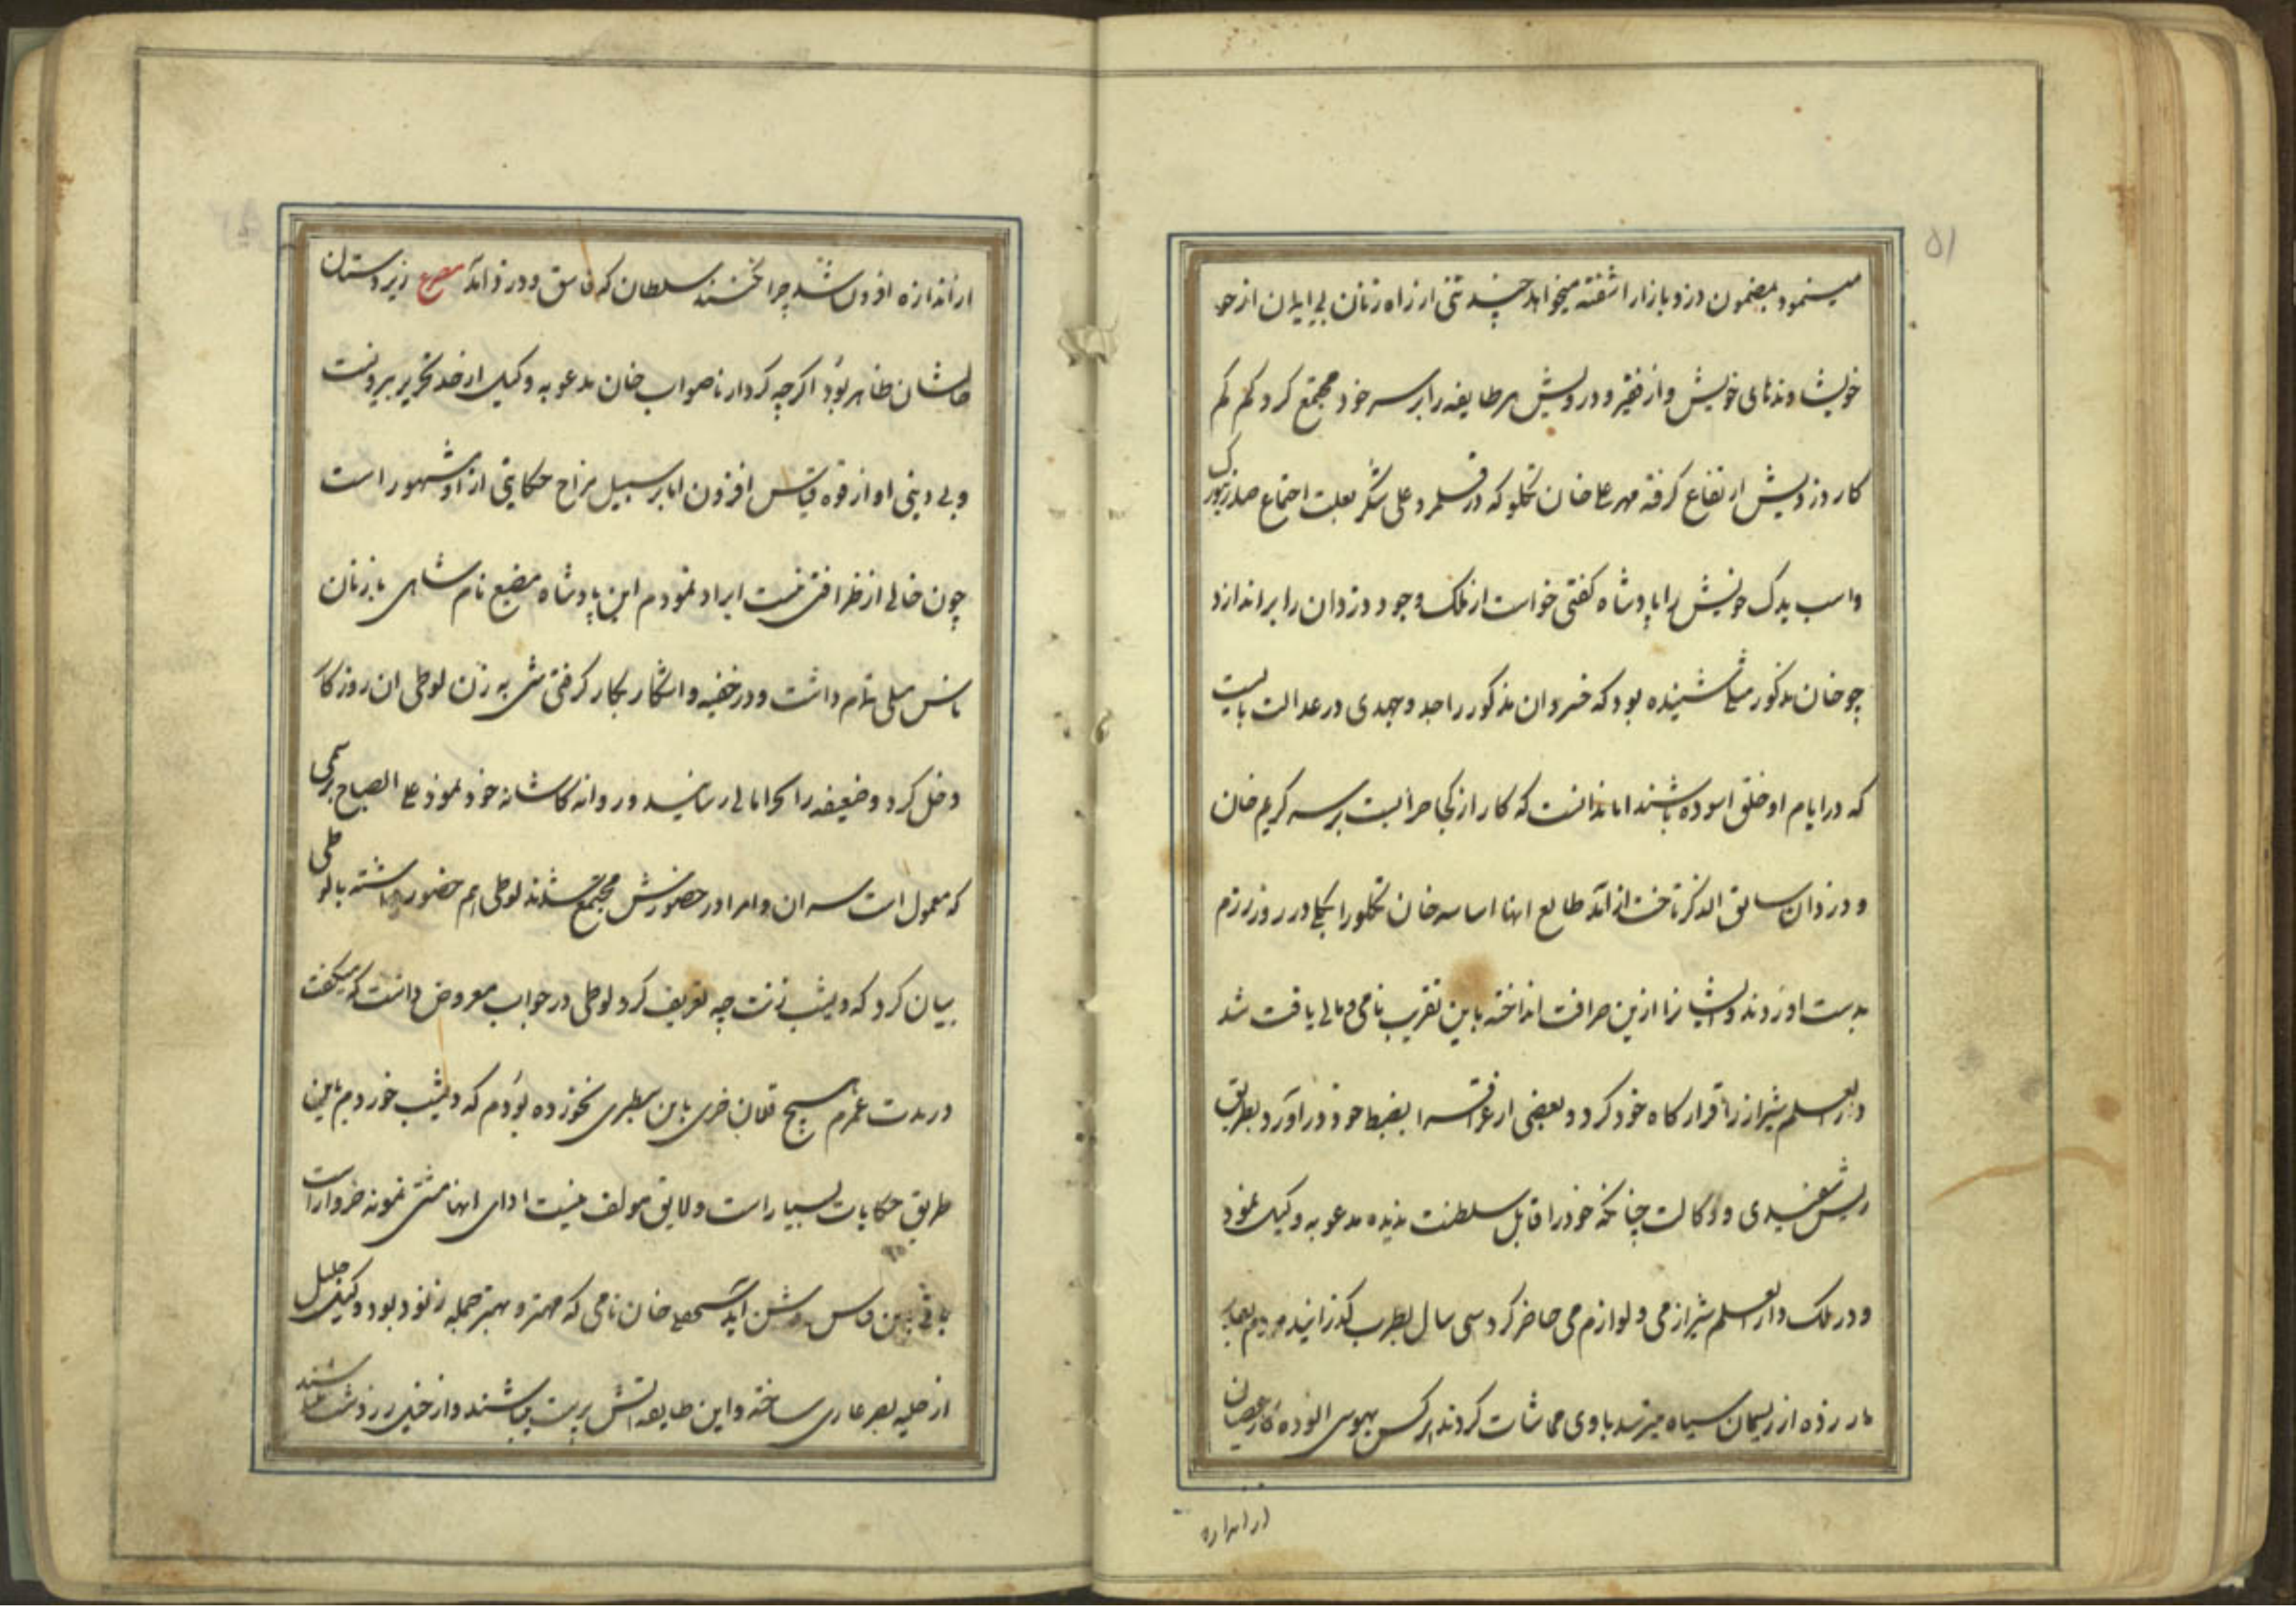 ۵۱
مینمود بمضمون دزد بازار اشفته میخواهد چند تنی از راه زنان بی ایمان از خو
خویشاوندهای خویش و از فقیر و درویش هر طایفه را بر سر خود مجتمع کرد کم کم
کار دزدیش ارتفاع گرفته مهر علی خان تکلو که در قلمرو علی شکر بعلت اجتماع صد
واسب یدک خویش را پادشاه گفتی خواست از ملک وجود دزدان را براندازد
چو خان مذکور شنیده بود که خسروان مذکور را جد و جهدی در عدالت بایست
که در ایام او خلق اسوده باشند اما ندانست که کار از کجا خرابست بر سر کریم خان
و دزدان سابق الذکر تاخت از آمد طالع انها اسا سر خان تکلو را در روز رزم
بدست اوردند و ایشانرا ازین حرافت انداخته باین تقریب نامی و مالی یافت شد
دار العلم شیراز را قرار کاه خود کرد و بعضی از عراق را بضبط خود در اورد بطریق
ریش سفیدی و وکالت چنانکه خود را قابل سلطنت ندیده مدعو به وکیل نمود
و در ملک دار العلم شیراز می و لوازم می حاضر کرد سی سال بطرب کذرانید مردم
مار زده از ریسمان سیاه میترسد باوی مماشات کردند هر کس بهوسی الوده کار عصیان
از اندازه
از اندازه افزون شد چرا نخسند سلطان که فاسق و دزد اند مصرع زیردستان
حالشان ظاهر بود اکرچه کردار ناصواب خان مدعو به وکیل از حد تحریر بیرونست
و بی دینی او از قوه قیاس افزون اما بر سبیل مزاح حکایتی از او مشهور است
چون خالی از ظرافتی نیست ایراد نمودم این پادشاه مضیع نام شاهی با زنان
ناس میلی تمام داشت و در خفیه و اشکار بکار کرفتی شبی به زن لوطی ان روزکار
دخل کرد و ضعیفه را رسانید و روانه کاشانه خود نمود علی الصباح برسمی
که معمول است سران و امرا در حضورش مجتمع شدند لوطی هم حضور داشته با لوطی
بیان کرد که دیشب زنت چه تعریف کرد لوطی در جواب معروض داشت که میکفت
در مدت عمرم هیچ قلمان خری باین سطبری نخورده بودم که دیشب خوردم باین
طریق حکایات بسیار است و لایق مولف نیست ادای انها مشتی نمونه خروار است
باقی ببین و س روشن اید خان نامی که مهتر و بهتر جمله زند بود وکیل
از حلیه بصر عاری ساخته و این طایفه اتش پرست میباشند و از خیل زردشت